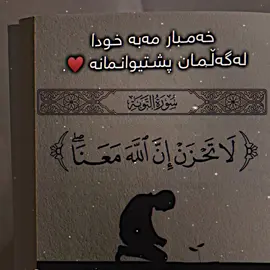 خەمبار مەبە خودا
لەگەڵمان پشتیوانمانە ❤️.
سُورَةُ التَّوْبَة
﴿ لَا تَحْزَنْ إِنَّ ٱللَّهَ مَعَنَاۖ ﴾